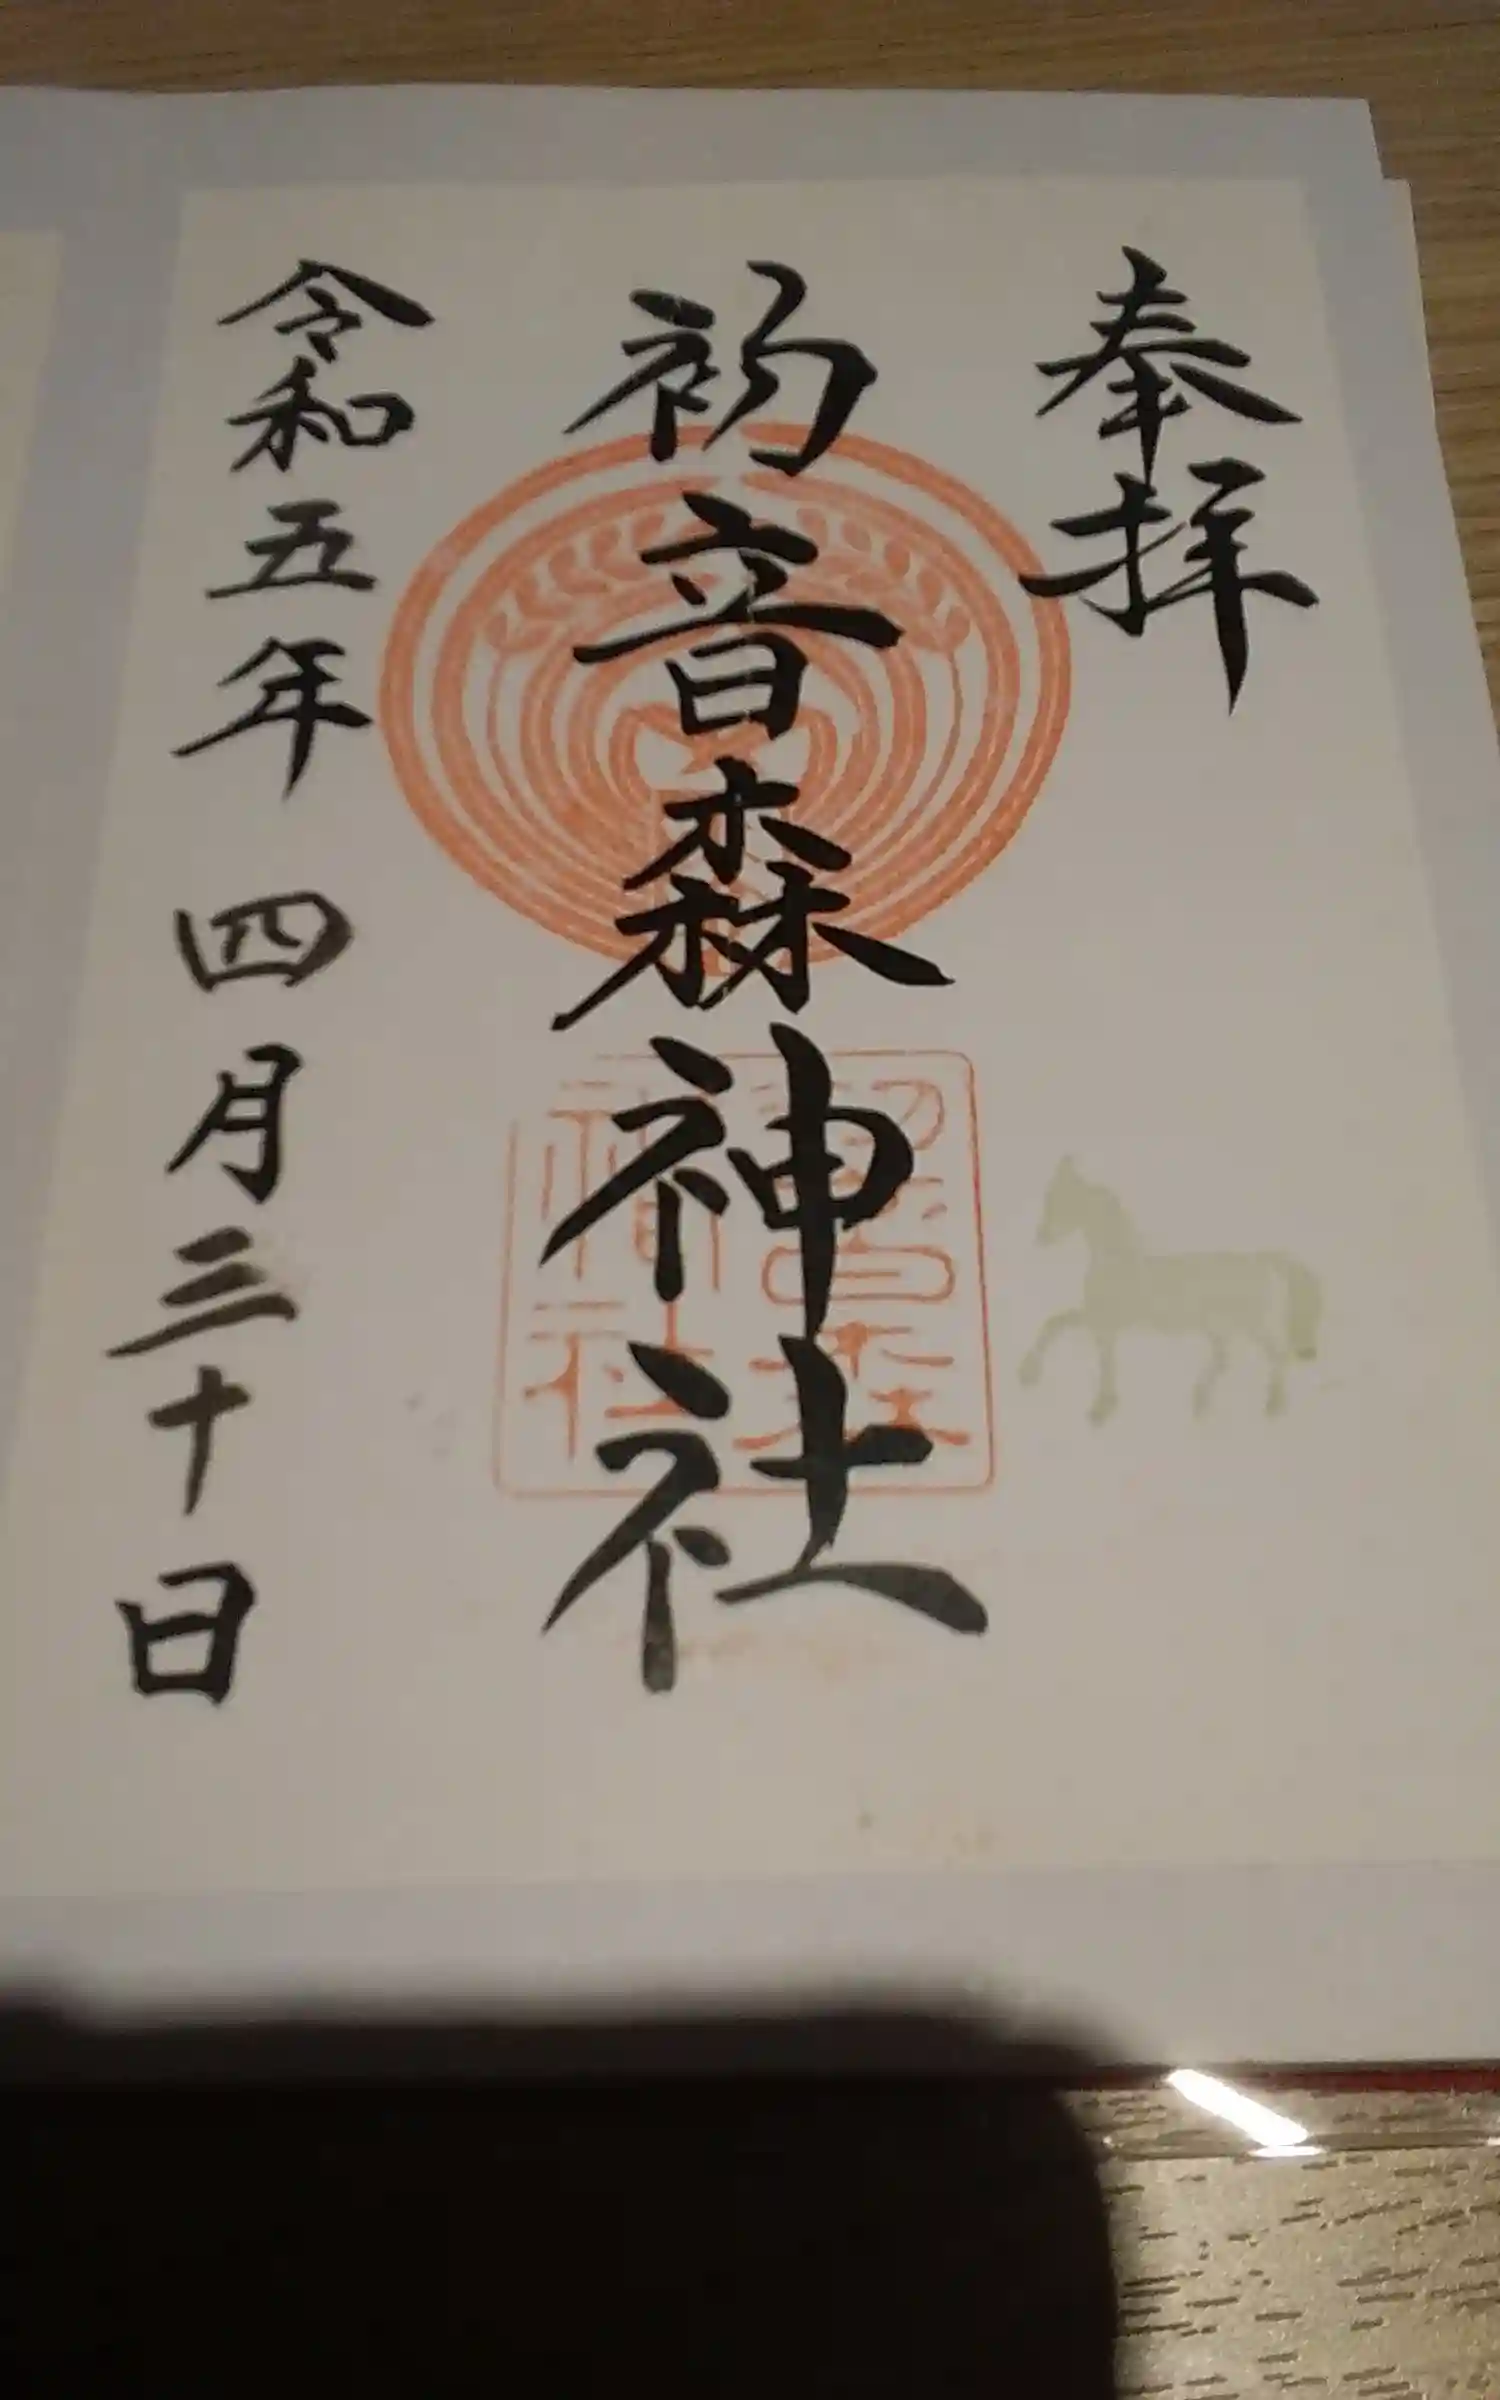 奉拝
初音森神社
初音森
神社
令和五年 四月三十日